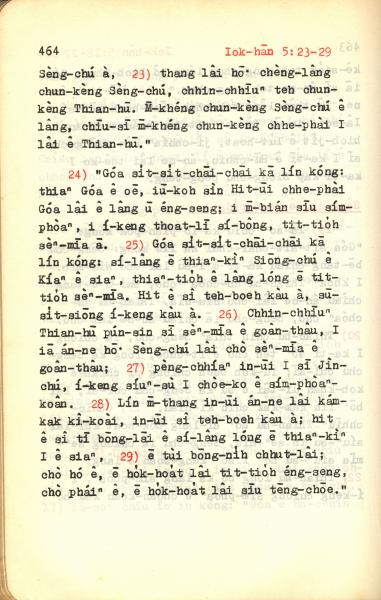 464 Iok-hān 5:23-29
Sèng-chú à, 23) thang lâi hō· chèng-lâng
chun-kèng Sèng-chú, chhin-chhīuⁿ teh chun-
kèng Thian-hū. M̄-khéng chun-kèng Sèng-chú ê
lâng, chīu-sī m̄-khéng chun-kèng chhe-phài I
lâi ê Thian-hū."
24) "Góa si̍t-si̍t-chāi-chāi kā lín kóng:
thiaⁿ Góa ê oē, iū-koh sìn Hit-ūi chhe-phài
Góa lâi ê lâng ū éng-seng; i m̄-bián siu sím-
phòaⁿ, i í-keng thoat-lī sí-bông, tit-tio̍h
sèⁿ-miā à. 25) Góa si̍t-si̍t-chāi-chāi kā
lín kóng: sí-lâng ē thiaⁿ-kìⁿ Siōng-chú ê
Kíaⁿ ê siaⁿ, thiaⁿ-tio̍h ê lâng lóng ē tit-
tio̍h sèⁿ-miā. Hit ê sî teh-boeh kàu à, sū-
si̍t-siōng í-keng kàu à. 26) Chhin-chhīuⁿ
Thian-hū pún-sin sī sèⁿ-miā ê goân-thâu, I
iā án-ne hō· Sèng-chú lâi chò sèⁿ-miā ê
goân-thâu; 27) pèng-chhíaⁿ in-ūi I sī Jîn-
chú, í-keng siúⁿ-sù I chōe-ko ê sím-phòaⁿ-
koân. 28) Lín m̄-thang in-ūi án-ne lâi kám-
kak kî-koài, in-ūi sî teh-boeh kàu à; hit
ê sî tī bōng-lāi ê sí-lâng lóng ē thiaⁿ-kìⁿ
I ê siaⁿ, 29) ē tùi bōng-ni̍h chhut-lâi;
chò hó ê, ē ho̍k-hoa̍t lâi tit-tio̍h éng-seng,
chò pháiⁿ ê, ē ho̍k-hoa̍t lâi siū tēng-chōe."